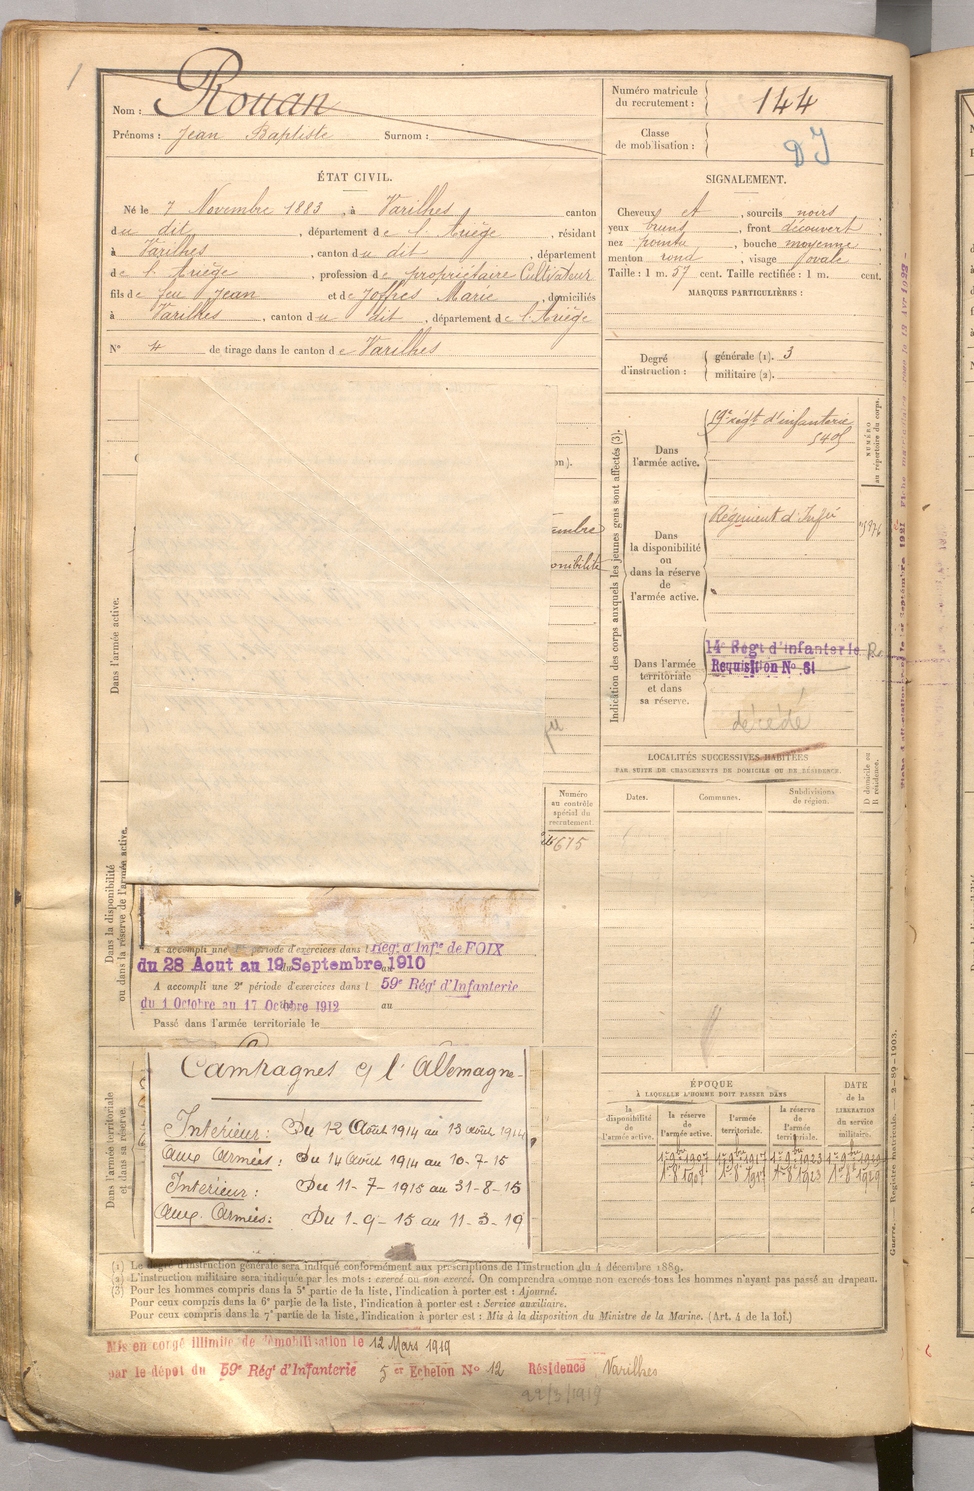 1
Nom : Rouan
Prénoms : Jean Baptiste Surnom :
Numéro matricule
du recrutement : 144
Classe
de mobilisation :
ÉTAT CIVIL.
Né le 7 Novembre 1883, à Varilhes canton
du dit, département de l'Ariège, résidant
à Varilhes, canton du dit, département
de l'Ariège, profession de propriétaire Cultivateur
fils de feu Jean et de Joffres Marie, domiciliés
à Varilhes, canton du dit, département de l'Ariège
N° 4 de tirage dans le canton de Varilhes
SIGNALEMENT.
Cheveux et, sourcils noirs
yeux bruns, front découvert
nez pointu, bouche moyenne
menton rond, visage ovale
Taille : 1 m. 57 cent. Taille rectifiée : 1 m. cent.
MARQUES PARTICULIÈRES :
Degré
d'instruction :
générale (1). 3
militaire (2).
Indication des corps auxquels les jeunes gens sont affectés (3).
NUMÉRO
au répertoire du corps.
Dans
l'armée active.
régt d'infanterie
Dans
la disponibilité
ou
dans la réserve
de
l'armée active.
Régiment d'Inf
Dans l'armée
territoriale
et dans
sa réserve.
14e Régt d'Infanterie
Requisition No 61
décédé
LOCALITÉS SUCCESSIVES HABITÉES
PAR SUITE DE CHANGEMENTS DE DOMICILE OU DE RÉSIDENCE.
Dates.
Communes.
Subdivisions
de région.
D domicile ou
R résidence.
Dans l'armée active.
on).
embre
onibilité
Numéro
au contrôle
spécial du
recrutement.
675
Dans la disponibilité
ou dans la réserve de l'armée active.
A accompli une 1re période d'exercices dans l Rég. d'Infie de FOIX
du 28 Aout au 19 Septembre 1910
A accompli une 2e période d'exercices dans l 59e Régt d'Infanterie
du 1 Octobre au 17 Octobre 1912 au
Passé dans l'armée territoriale le
Dans l'armée territoriale
et dans sa réserve.
Campagnes c/ l'Allemagne
Intérieur : Du 12 Août 1914 au 13 août 1914
Aux Armées : Du 14 Août 1914 au 10-7-15
Intérieur : Du 11-7-1915 au 31-8-15
Aux Armées : Du 1-9-15 au 11-3-19
ÉPOQUE
À LAQUELLE L'HOMME DOIT PASSER DANS
la
disponibilité
de
l'armée active.
la réserve
de
l'armée active.
l'armée
territoriale.
la réserve
de
l'armée
territoriale.
DATE
de la
LIBÉRATION
du service
militaire.
1er 9bre 1907 1er 9bre 1917 1er 9bre 1923 1er 9bre 1929
1er 8 1907 1er 8 1917 1er 8 1923 1er 8 1929
Guerre. — Registre matricule. — 2-89-1903.
(1) Le degré d'instruction générale sera indiqué conformément aux prescriptions de l'instruction du 4 décembre 1889.
(2) L'instruction militaire sera indiquée par les mots : exercé ou non exercé. On comprendra comme non exercés tous les hommes n'ayant pas passé au drapeau.
(3) Pour les hommes compris dans la 5e partie de la liste, l'indication à porter est : Ajourné.
Pour ceux compris dans la 6e partie de la liste, l'indication à porter est : Service auxiliaire.
Pour ceux compris dans la 7e partie de la liste, l'indication à porter est : Mis à la disposition du Ministre de la Marine. (Art. 4 de la loi.)
Mis en congé illimité de démobilisation le 12 Mars 1919
par le dépot du 59e Régt d'Infanterie 5 er Echelon No 12 Résidence Varilhes
22/3/1919